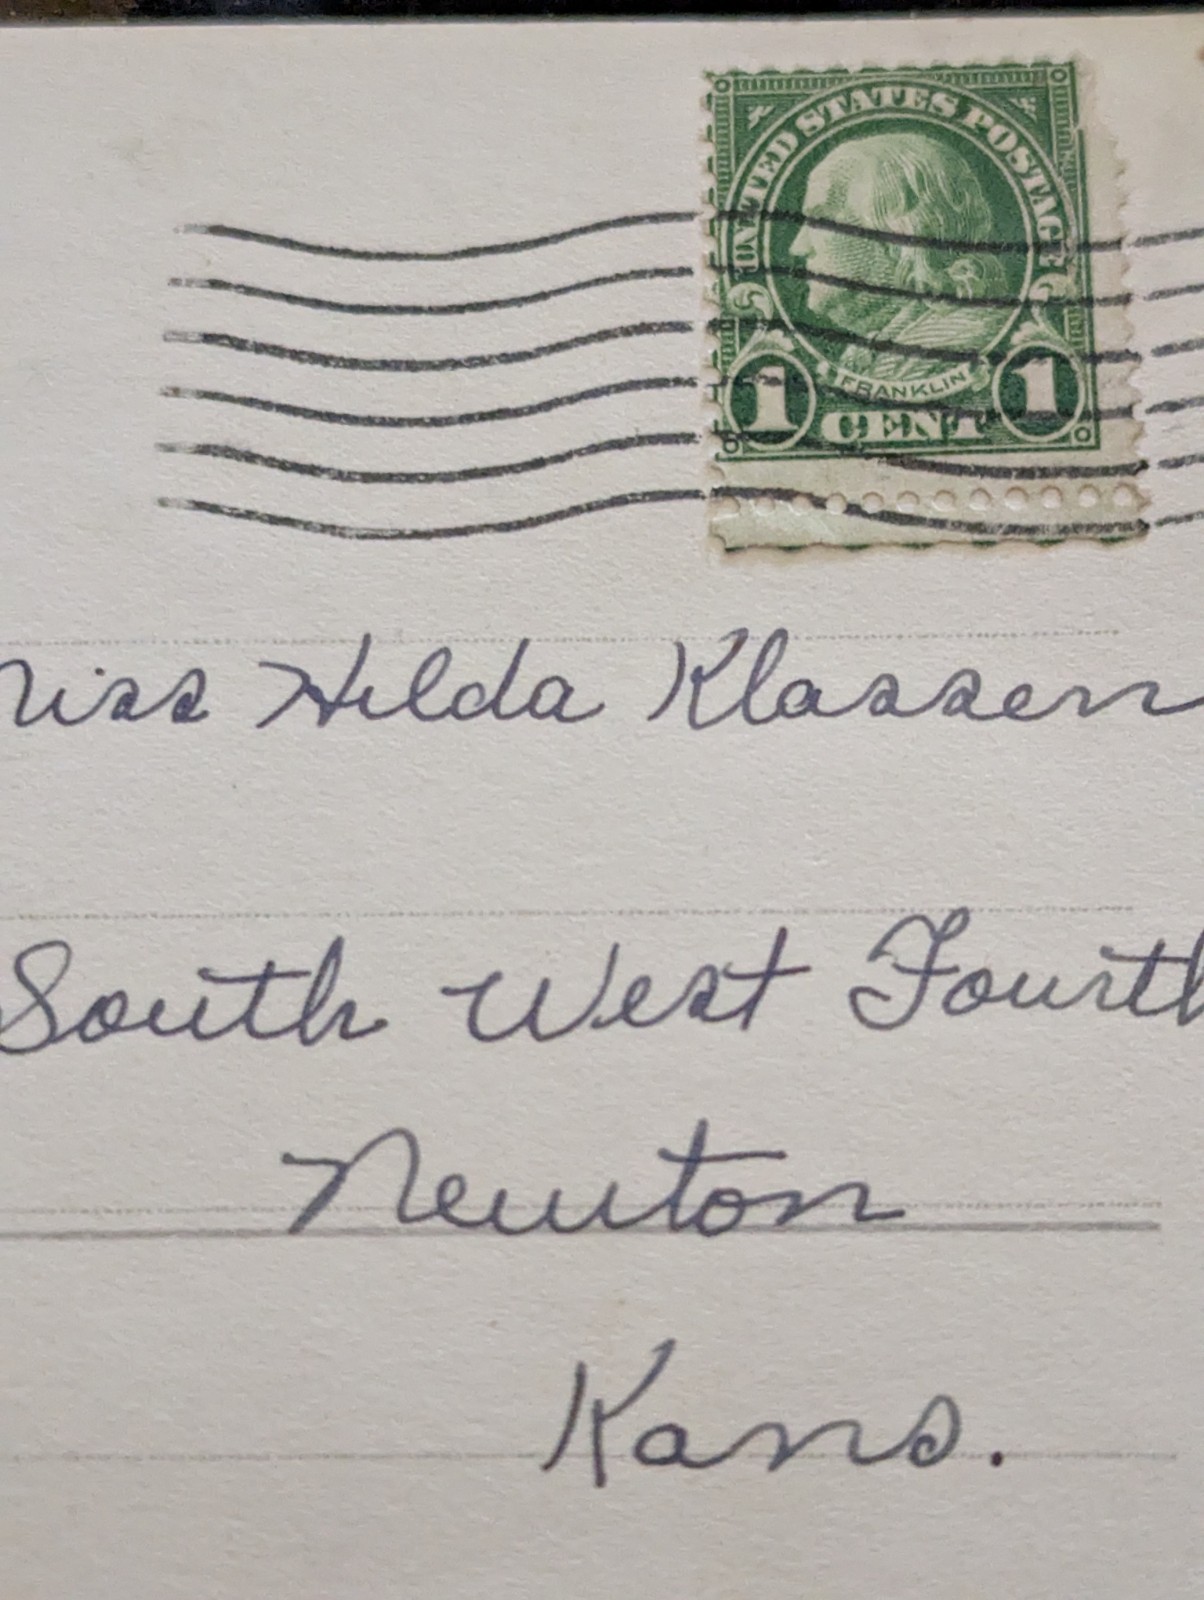 UNITED STATES POSTAGE
FRANKLIN
1 CENT 1
Miss Hilda Klassen
South West Fourth
Newton
Kans.